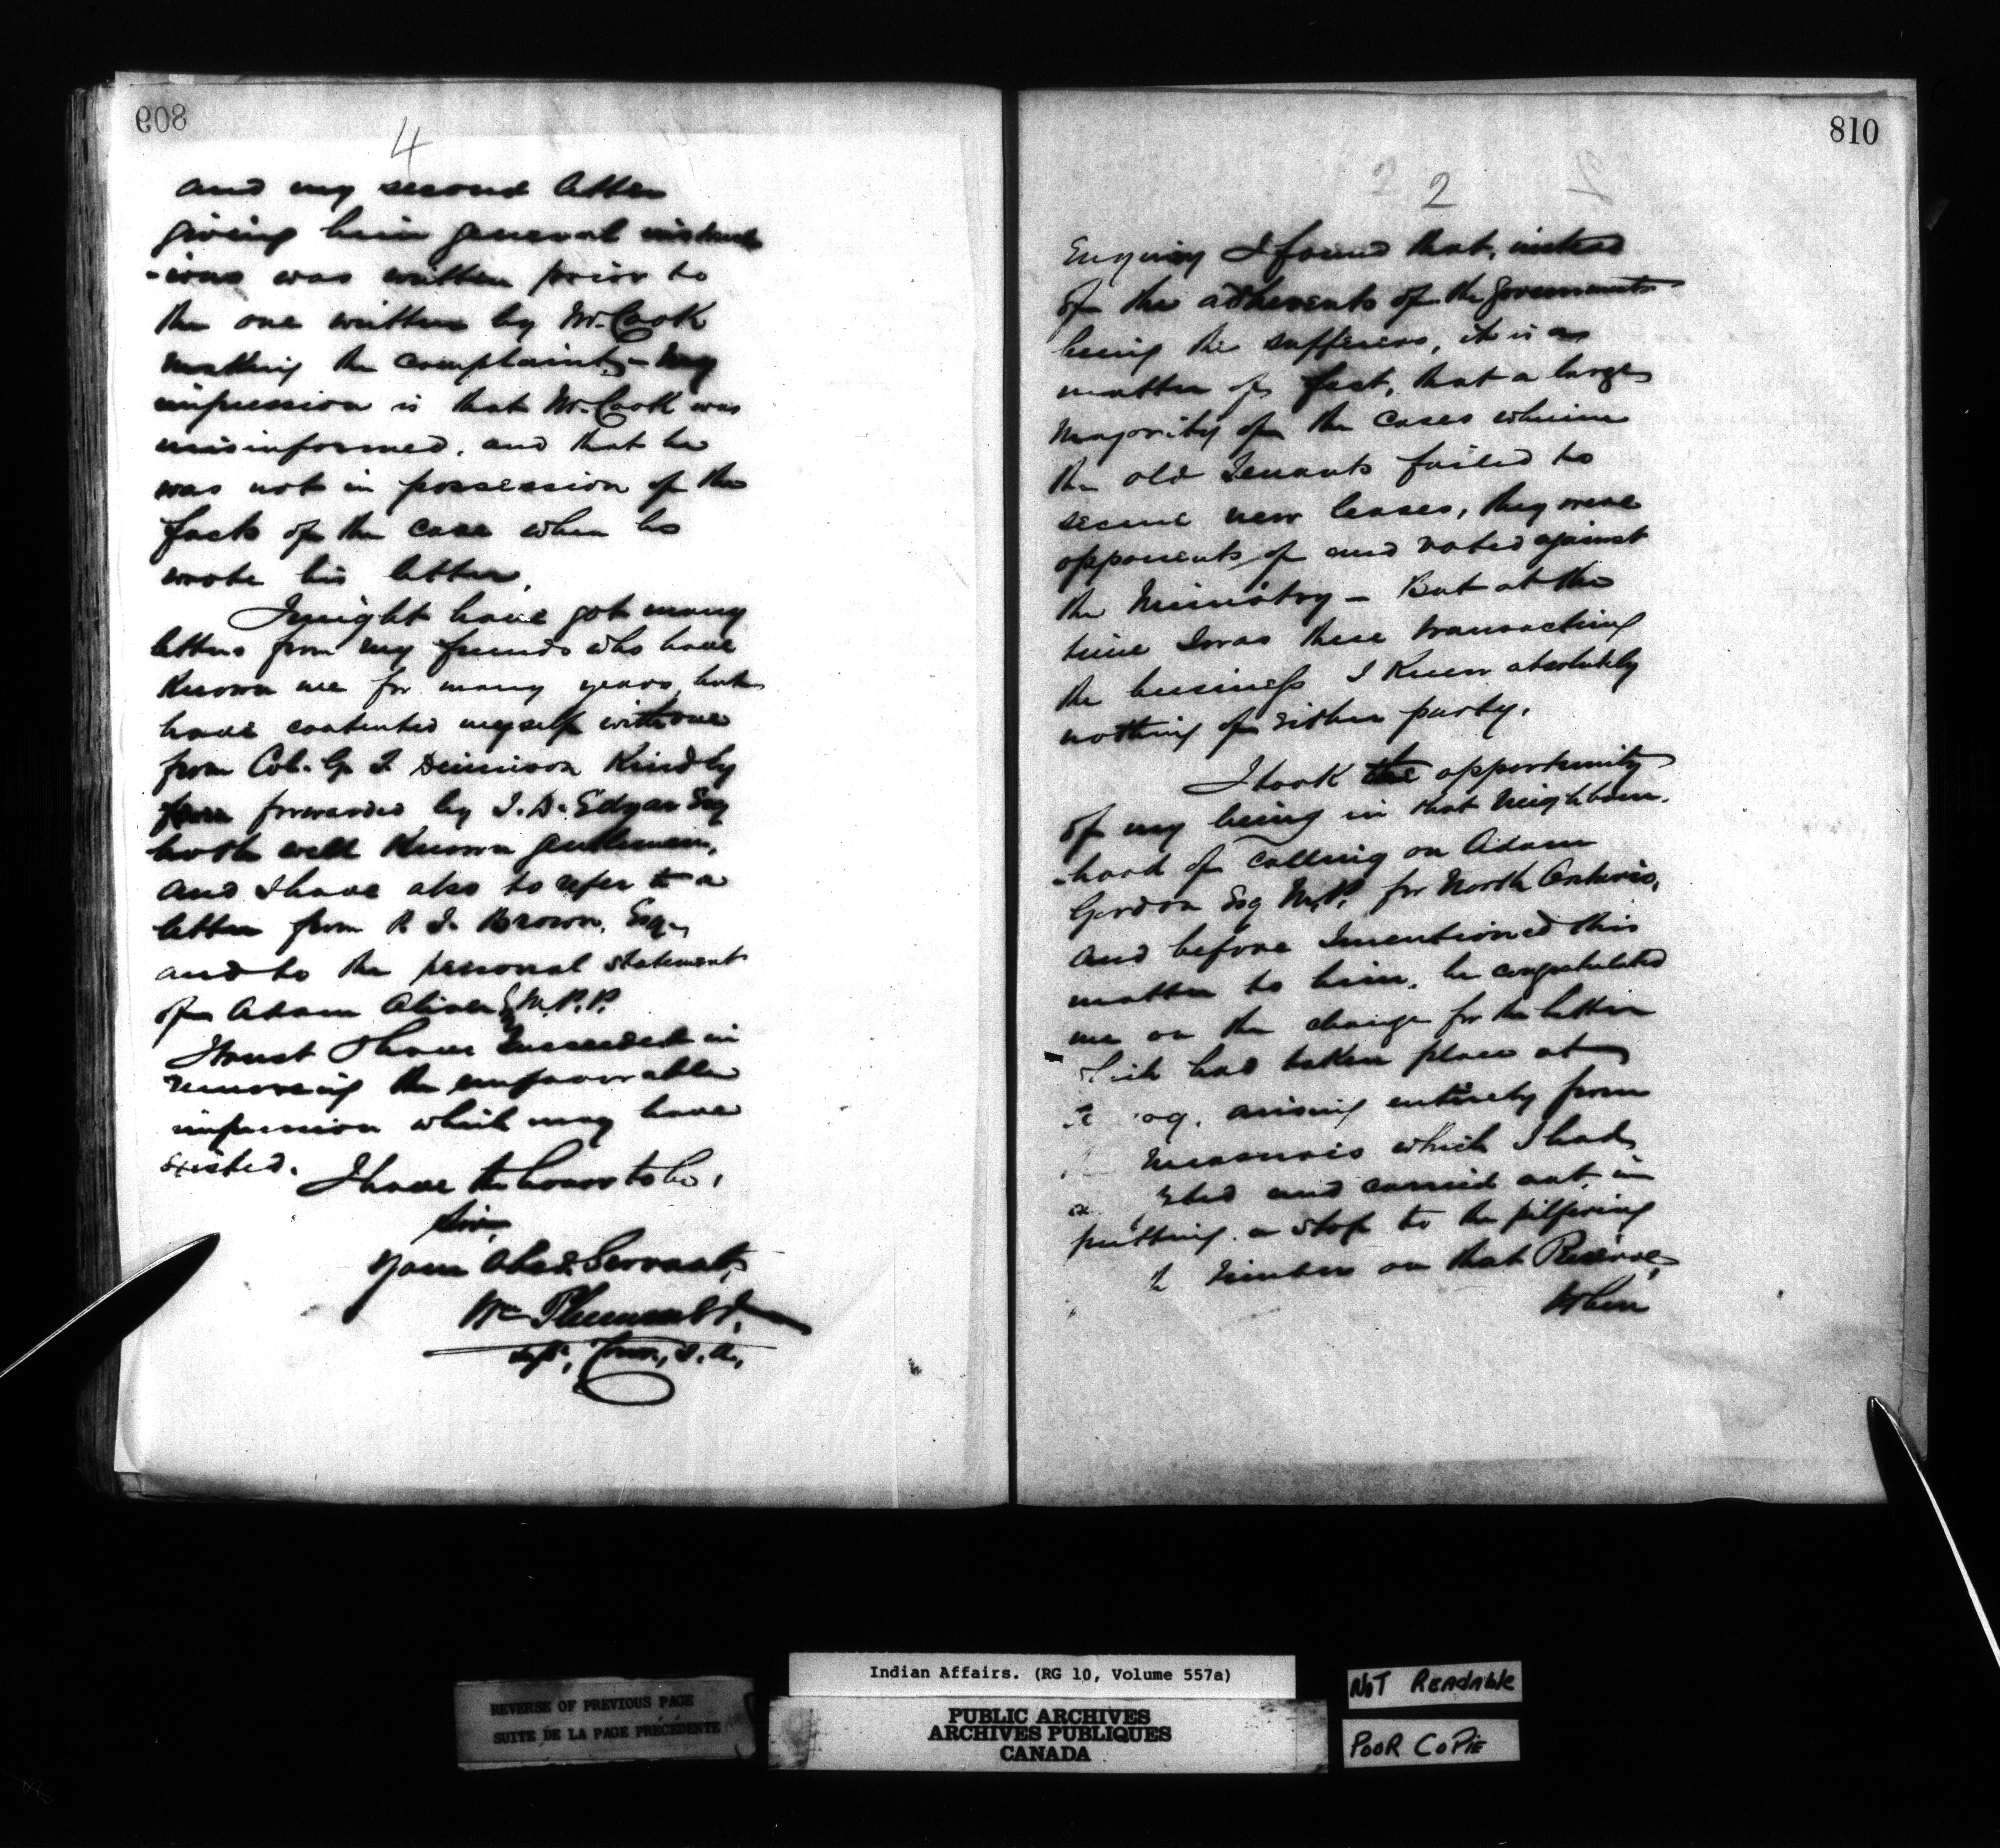 809
4
and my second letter
giving him general instruct
-ions was written prior to
the one written by Mr. Cook
making the complaint, - my
impression is that Mr. Cook was
misinformed, and that he
was not in possession of the
facts of the case when he
wrote his letter.
I might have got many
letters from my friends who have
known me for many years, but
have contented myself with one
from Col. G. T. Dennison Kindly
forwarded by J. D. Edgar Esq
both well Known gentlemen,
and I have also to refer to a
letter from R. J. Brown, Esq.,
and to the personal statement
of Adam Oliver Esq M.P.P.
I trust I have succeeded in
removing the unfavorable
impression which may have
existed.
I have the honor to be,
Sir,
Your Obed. Servant,
Wm Plummer
Supt. Com., I. A.,
810
2 2
Enquiry I found that, instead
of the adherents of the Government
being the sufferers, it is a
matter of fact, that a large
Majority of the cases wherein
the old Tenants failed to
secure new leases, they were
opponents of and voted against
the Ministry - But at the
time I was there transacting
the business I Knew absolutely
nothing of either party.
I took the opportunity
of my being in that neighbour-
-hood of calling on Adam
Gordon Esq M.P. for North Ontario,
and before I mentioned this
matter to him, he congratulated
me on the change for the better
which had taken place at
og, arising entirely from
measures which I had
and carried out in
putting a stop to the pilfering
timber on that Reserve,
When
REVERSE OF PREVIOUS PAGE
SUITE DE LA PAGE PRÉCÉDENTE
Indian Affairs. (RG 10, Volume 557a)
PUBLIC ARCHIVES
ARCHIVES PUBLIQUES
CANADA
NOT READABLE
POOR COPIE